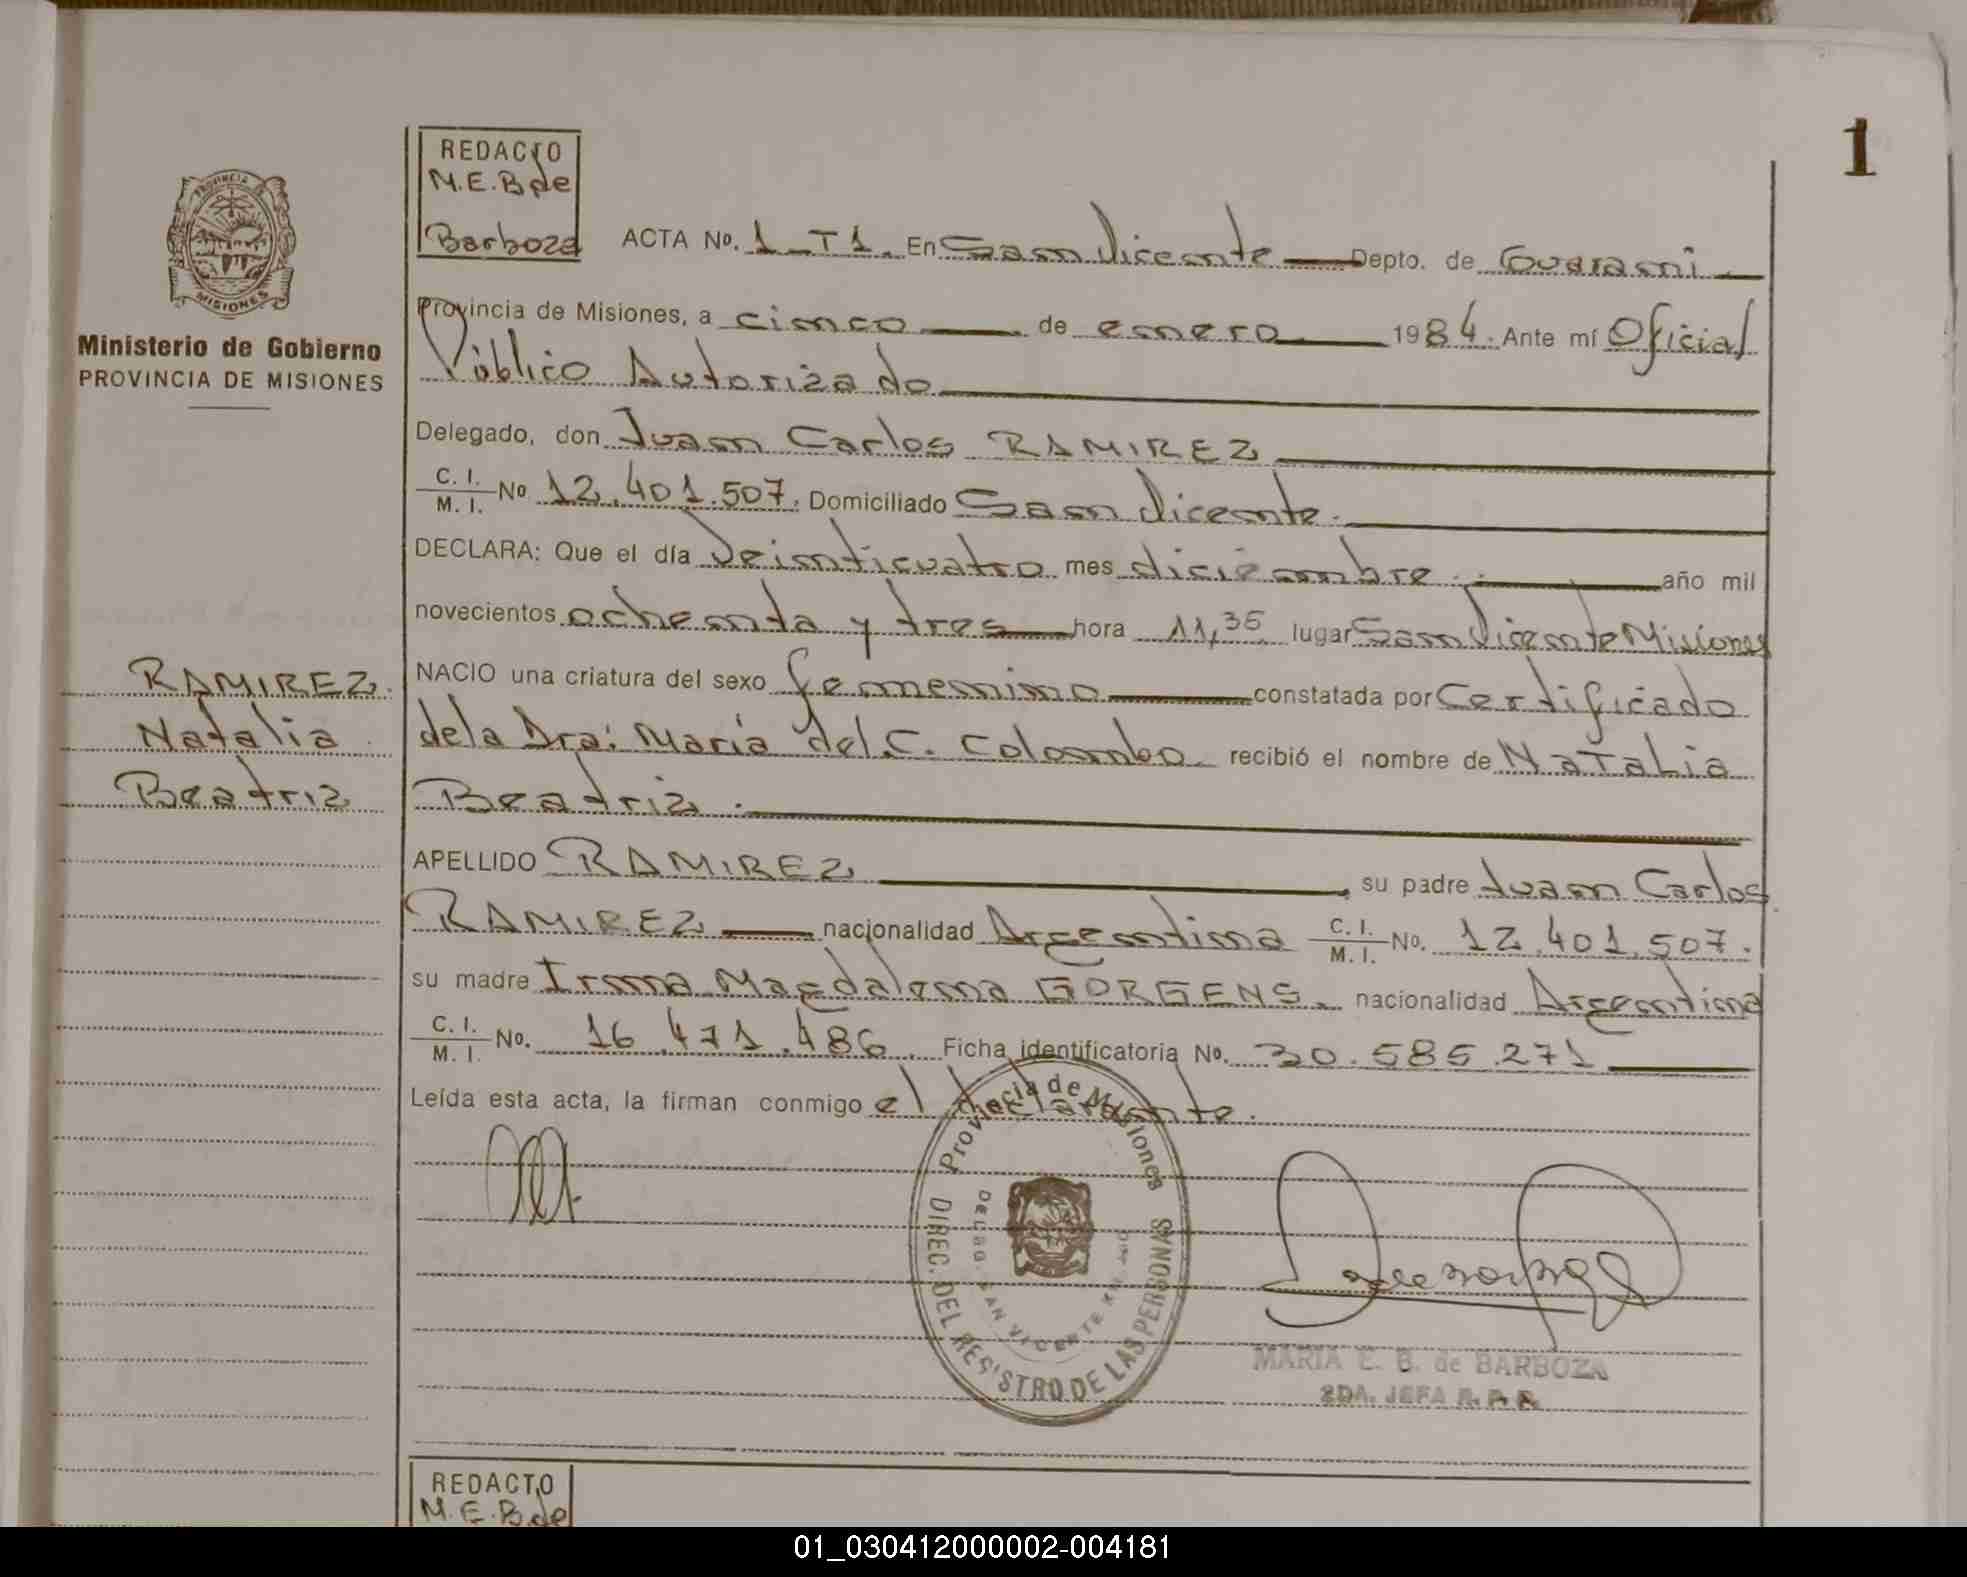 1
REDACTO
M.E.B de
Barboza
ACTA No. 1-T1. En San Vicente Depto. de Guarani
PROVINCIA DE
MISIONES
Ministerio de Gobierno
PROVINCIA DE MISIONES
Provincia de Misiones, a cinco de enero 1984. Ante mí Oficial
Público Autorizado
Delegado, don Juan Carlos RAMIREZ
C. I.
M. I. No 12.401.507. Domiciliado San Vicente.
DECLARA: Que el día Veinticuatro mes diciembre. año mil
novecientos ochenta y tres hora 11,35 lugar San Vicente Misiones
RAMIREZ
Natalia
Beatriz
NACIO una criatura del sexo femenino constatada por Certificado
de la Dra: María del C. Colombo recibió el nombre de NATALia
Beatriz.
APELLIDO RAMIREZ, su padre Juan Carlos
RAMIREZ nacionalidad Argentina C. I.
M. I. No. 12.401.507.
su madre Irma Magdalena GORGENS. nacionalidad Argentina
C. I.
M. I. No. 16.471.486. Ficha identificatoria No. 30.585.271
Leída esta acta, la firman conmigo el declarante.
Provincia de Misiones
DIREC. DEL REGISTRO DE LAS PERSONAS
DELEG. SAN VICENTE
MARIA E. B. de BARBOZA
2DA. JEFA
REDACTO
M.E.B de
01_030412000002-004181